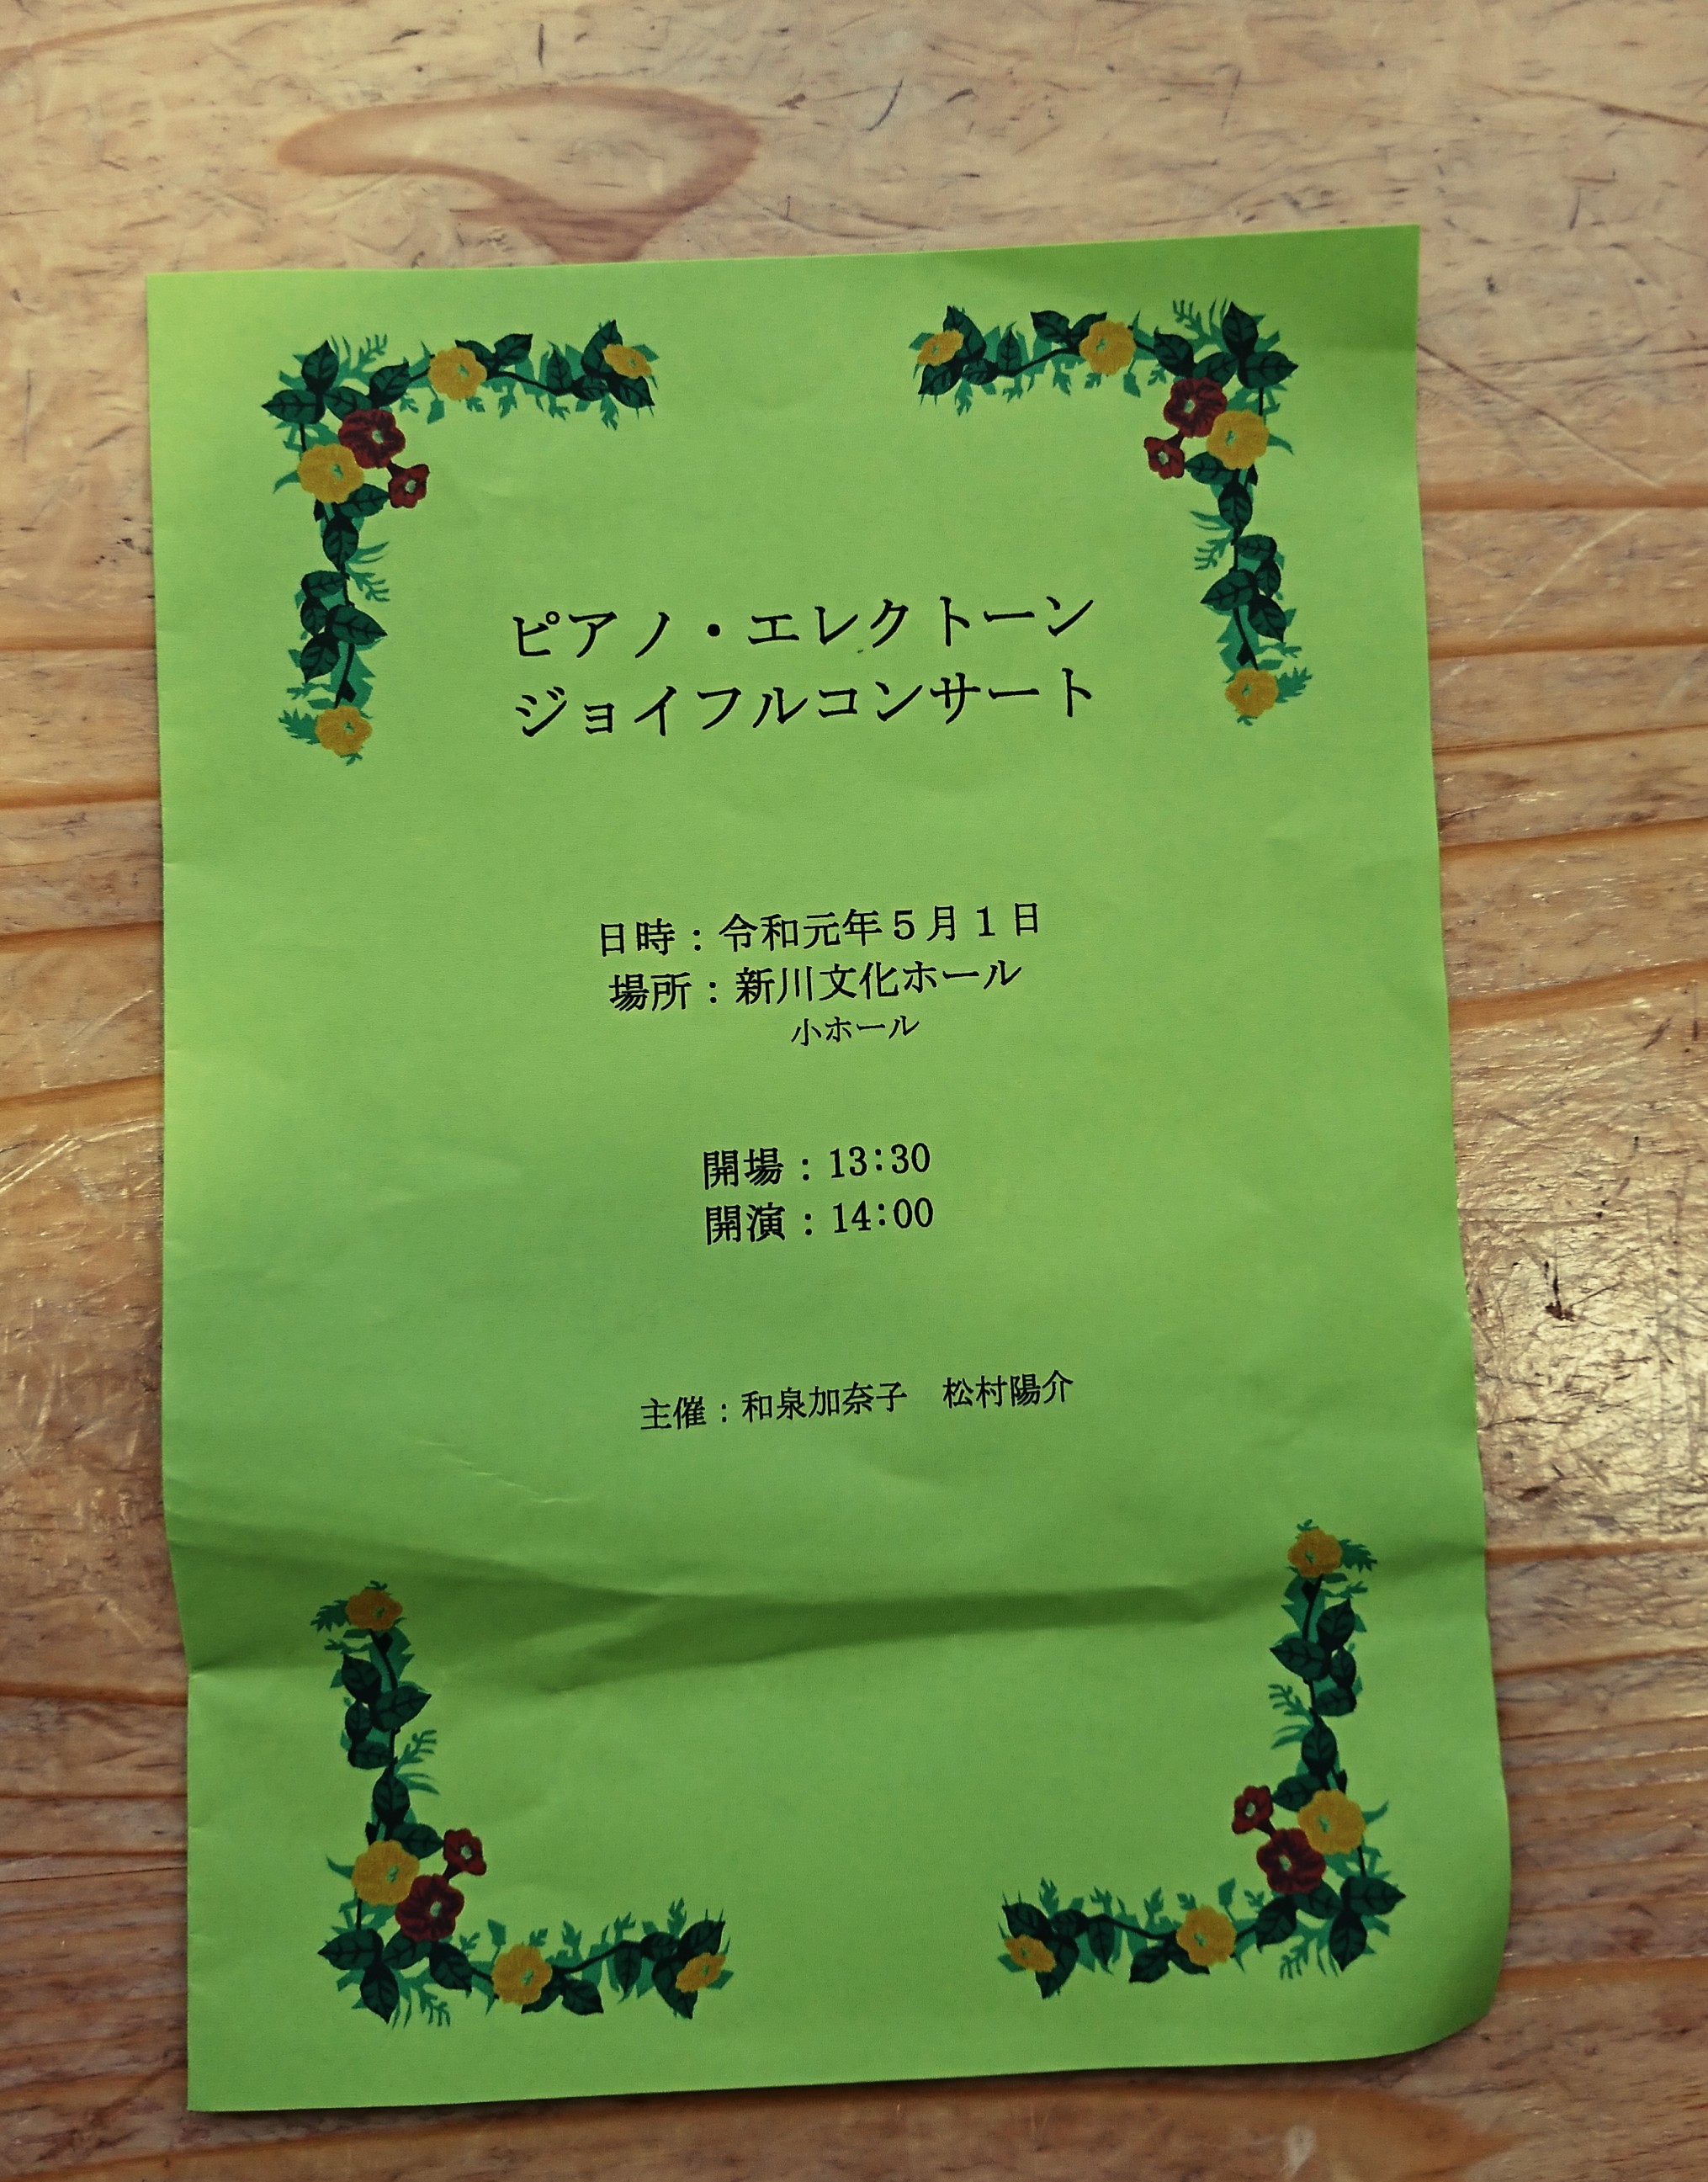 ピアノ・エレクトーン
ジョイフルコンサート
日時：令和元年５月１日
場所：新川文化ホール
小ホール
開場：13:30
開演：14:00
主催：和泉加奈子　松村陽介